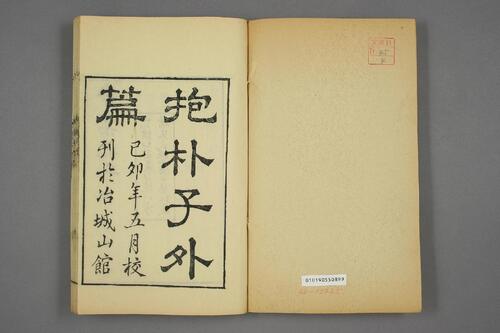 抱朴子外
篇
己卯年五月校
刊於冶城山館
010190550899